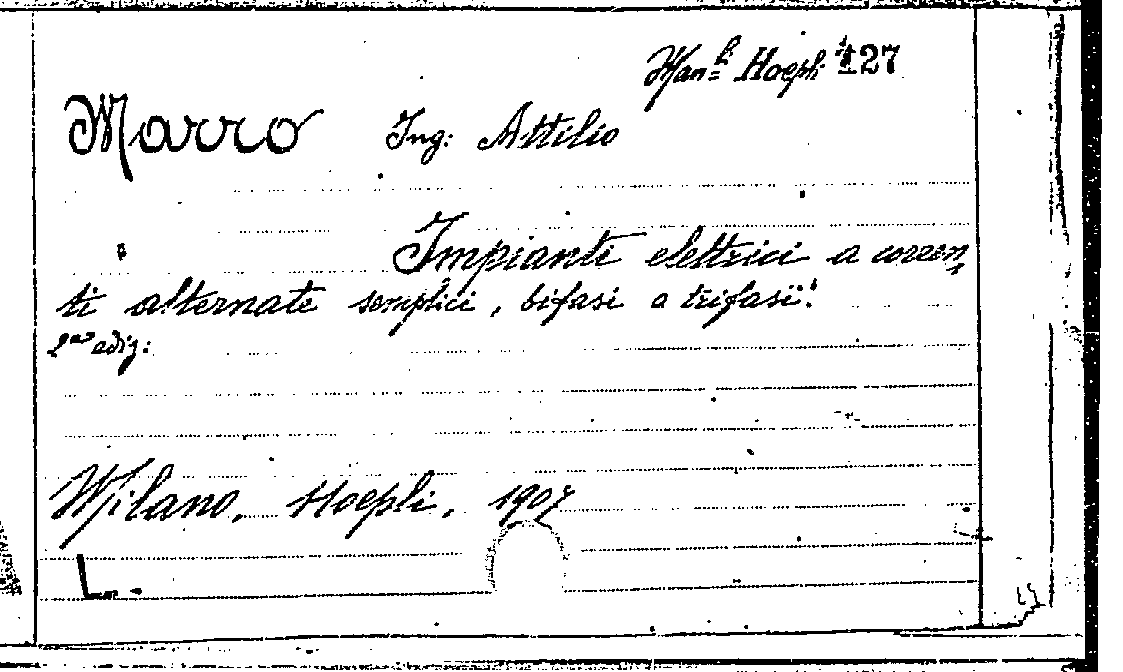 Man.li Hoepli 127
Marro Ing: Attilio
Impianti elettrici a corren,
ti alternate semplici, bifasi e trifasi.
2da ediz:
Milano, Hoepli, 1907